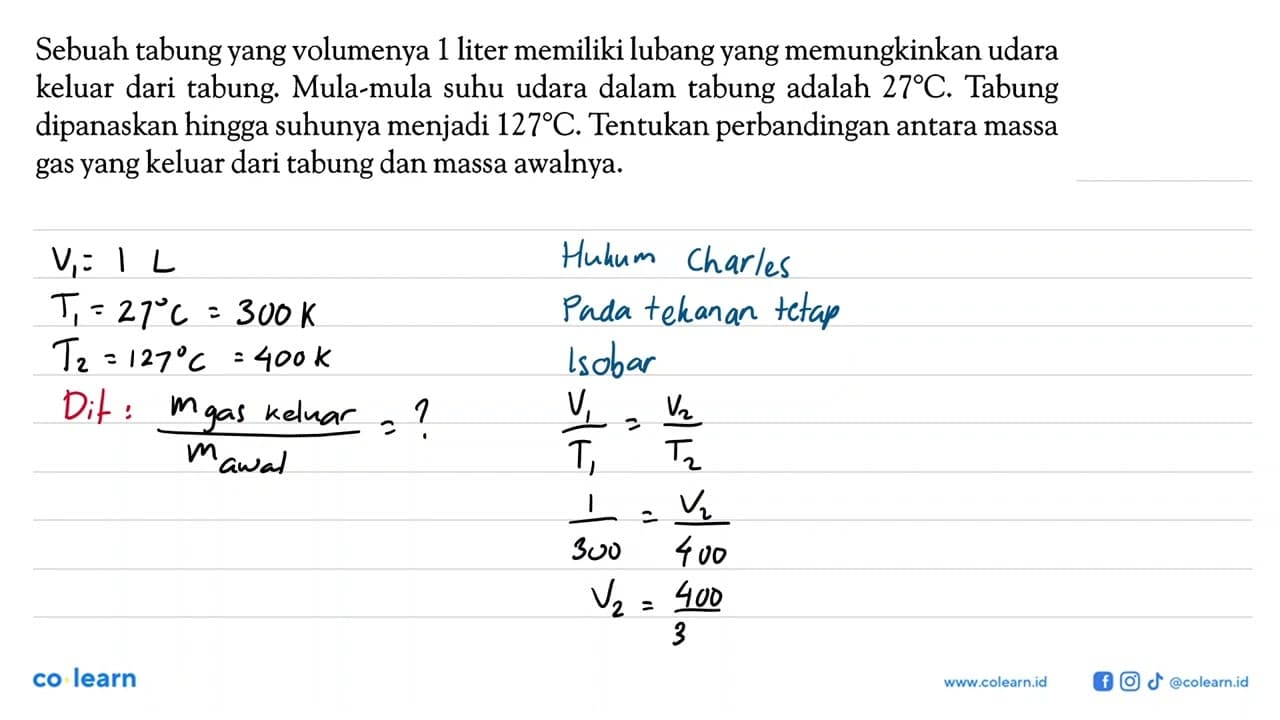 Sebuah tabung yang volumenya 1 liter memiliki lubang yang memungkinkan udara
keluar dari tabung. Mula-mula suhu udara dalam tabung adalah 27°C. Tabung
dipanaskan hingga suhunya menjadi 127°C. Tentukan perbandingan antara massa
gas yang keluar dari tabung dan massa awalnya.
V₁ = 1 L
T₁ = 27°C = 300 K
T₂ = 127°C = 400 K
Dit : m gas keluar / m awal = ?
Hukum Charles
Pada tekanan tetap
Isobar
V₁/T₁ = V₂/T₂
1/300 = V₂/400
V₂ = 400/3
co learn
www.colearn.id
@colearn.id